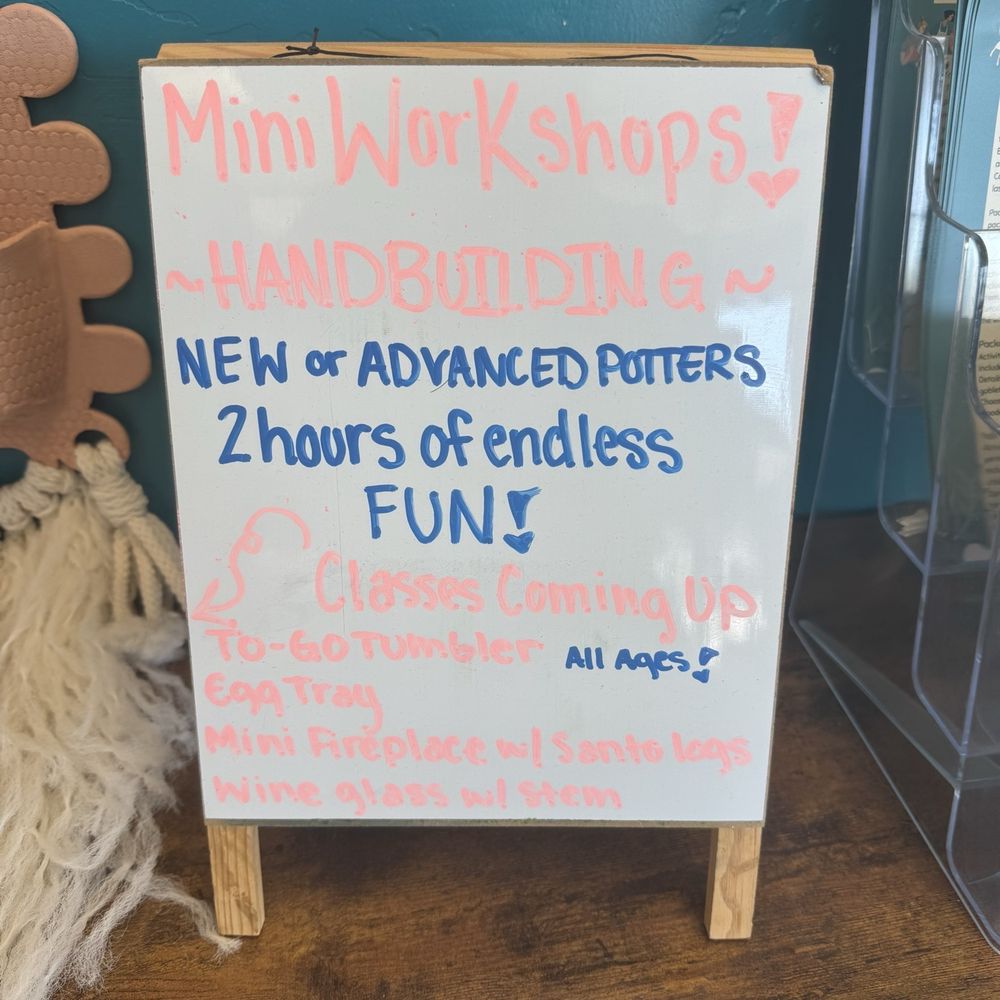 Mini WorKshops!
~HANDBUILDING~
NEW or ADVANCED POTTERS
2 hours of endless
FUN!
Classes Coming Up
To-Go Tumbler
All Ages!
Egg Tray
Mini Fireplace w/ Santo logs
Wine glass w/ stem